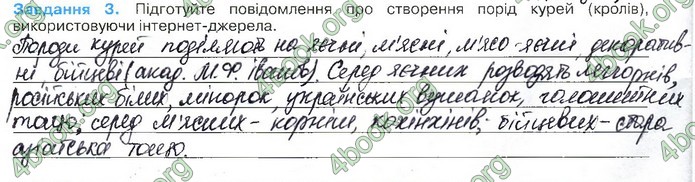 Завдання 3. Підготуйте повідомлення про створення порід курей (кролів),
використовуючи інтернет-джерела.
Породи курей поділяють на яєчні, м'ясні, м'ясо-яєчні, декоратив-
ні бійцеві (акад. М.Ф. Іванов). Серед яєчних розводять легорнів,
російських білих, мінорок, українських вушанок, голошийних
тощо, серед м'ясних - корніш, кохінхінів; бійцевих - стара
азіатська тощо.
4book.org